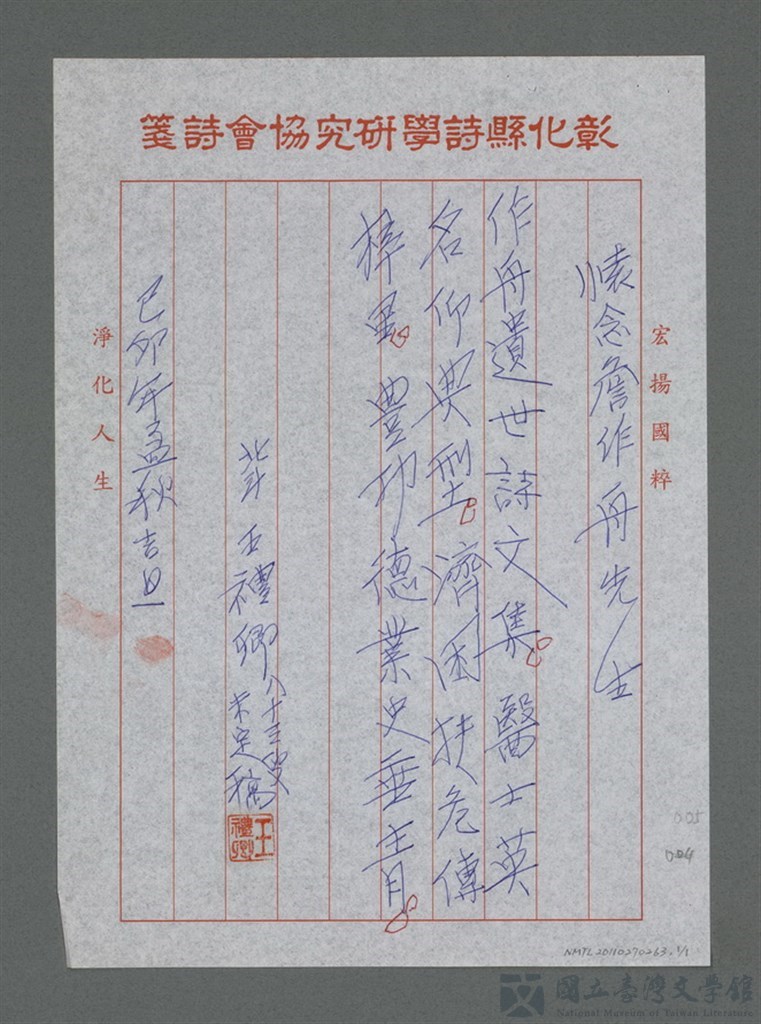 彰化縣詩學研究協會詩箋
宏揚國粹
懷念詹作舟先生
作舟遺世詩文集。醫士英
名仰典型。濟困扶危傳
梓里。豐功德業史垂青。
北斗 王禮卿八十三叟
未定稿
王禮卿
己卯年孟秋吉旦
淨化人生
005
004
NMTL20110270263.1/1
國立臺灣文學館
National Museum of Taiwan Literature